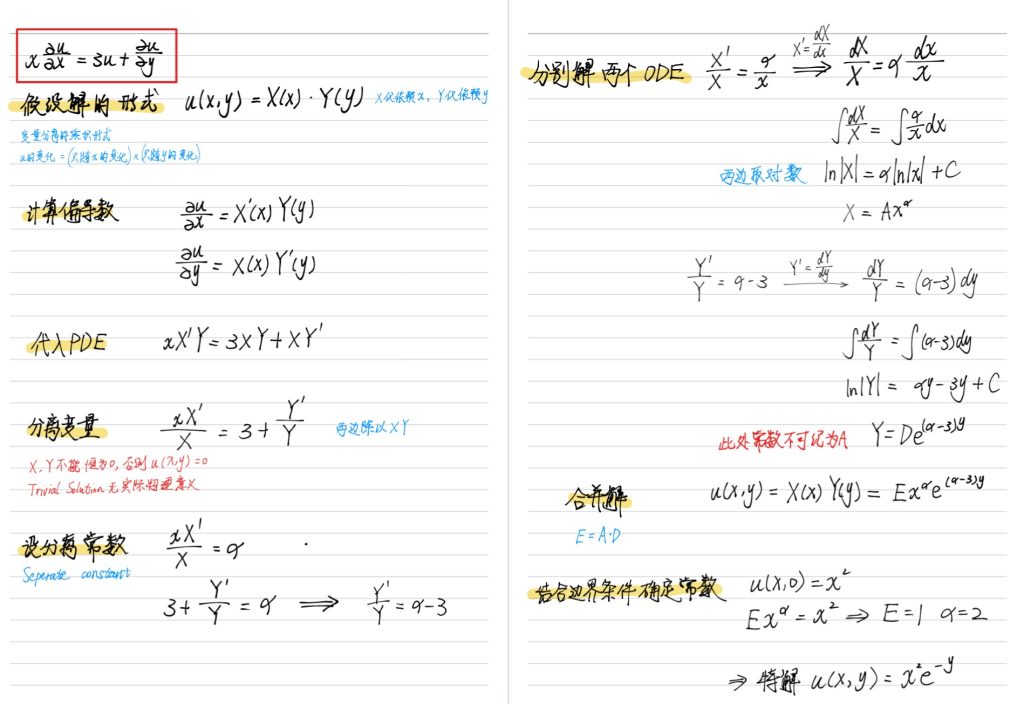 x ∂u/∂x = 3u + ∂u/∂y
假设解的形式 u(x,y) = X(x) · Y(y) X仅依赖x, Y仅依赖y
变量分离的乘积形式
u的变化 = (只随x的变化) × (只随y的变化)
计算偏导数 ∂u/∂x = X'(x) Y(y)
∂u/∂y = X(x) Y'(y)
代入PDE xX'Y = 3XY + XY'
分离变量 xX'/X = 3 + Y'/Y 两边除以XY
X, Y不能恒为0, 否则 u(x,y) = 0
Trivial Solution 无实际物理意义
设分离常数 xX'/X = α
Seperate constant
3 + Y'/Y = α ⟹ Y'/Y = α-3
分别解两个ODE X'/X = α/x X'=dX/dx ⟹ dX/X = α dx/x
∫dX/X = ∫α/x dx
两边取对数 ln|X| = α ln|x| + C
X = Ax^α
Y'/Y = α-3 Y'=dY/dy → dY/Y = (α-3) dy
∫dY/Y = ∫(α-3)dy
ln|Y| = αy - 3y + C
此处常数不可记为A Y = De^(α-3)y
合并解 u(x,y) = X(x) Y(y) = Ex^α e^(α-3)y
E = A·D
结合边界条件确定常数 u(x,0) = x²
Ex^α = x² ⇒ E=1 α=2
⇒ 特解 u(x,y) = x²e^-y